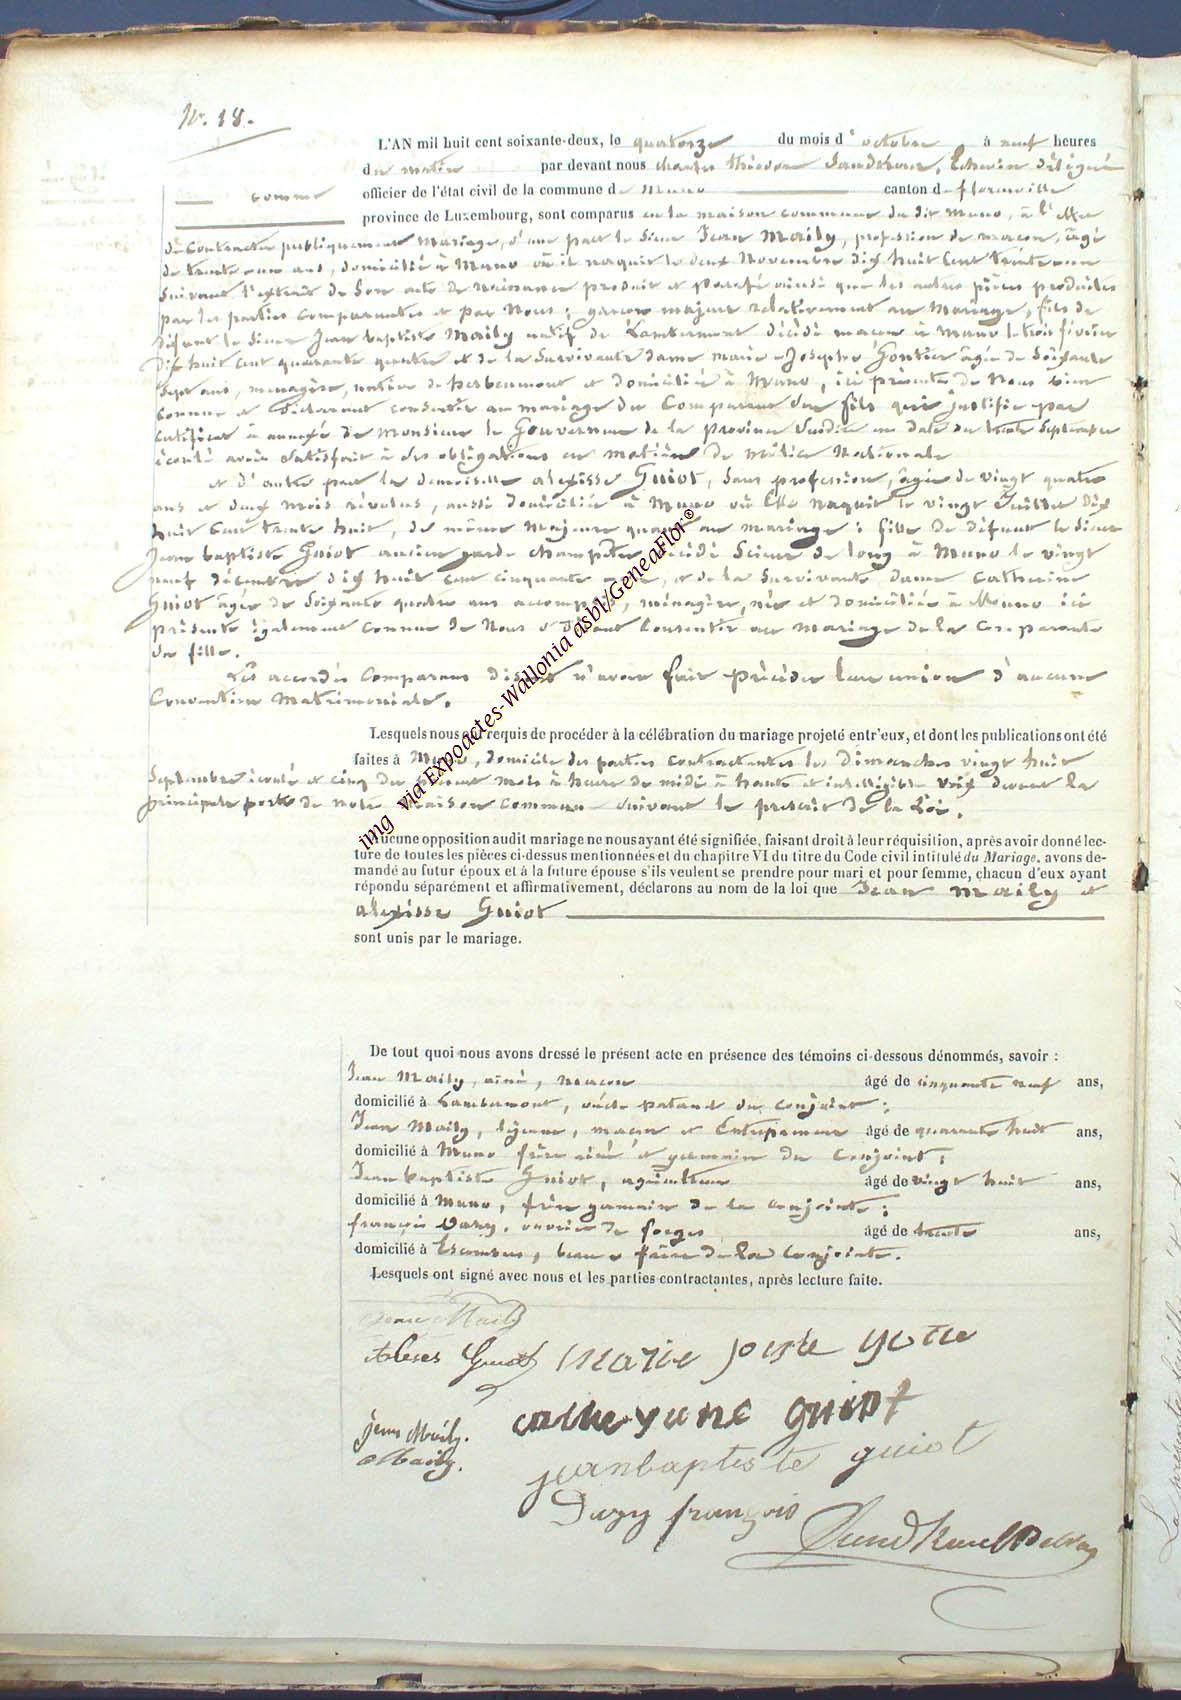 N°. 18.
L'AN mil huit cent soixante-deux, le quatorze du mois d'octobre à neuf heures
du matin par devant nous charles théodore Echevin délégué
comme officier de l'état civil de la commune de Muno canton de florenville
province de Luxembourg, sont comparus en la maison commune du dit Muno, à l'effet
de contracter publiquement mariage, d'une part le sieur Jean Maily, profession de maçon, âgé
de trente ans, domicilié à Muno où il naquit le deux Novembre dix huit cent trente un
suivant l'extrait de son acte de naissance produit et parafé ainsi que les autres pièces produites
par les parties comparantes et par Nous ; garçon majeur relativement au mariage, fils de
défunt le sieur Jean baptiste Maily natif de Lambermont décédé maçon à Muno le trois février
dix huit cent quarante quatre et de la survivante dame marie Josephe Gontier âgée de soixante
sept ans, ménagère, native de herbeumont et domiciliée à Muno, ici présente de Nous bien
connue et déclarant consentir au mariage du Comparant son fils qui justifie par
certificat ci annexé de Monsieur le Gouverneur de la province susdite en date du trente Septembre
écoulé avoir satisfait à ses obligations en matière de Milice Nationale
et d'autre part la demoiselle alexisse Guiot, sans profession, âgée de vingt quatre
ans et deux mois révolus, aussi domiciliée à Muno où Elle naquit le vingt Juillet dix
huit cent trente huit, de même majeure quant au mariage : fille de défunt le sieur
Jean baptiste Guiot ancien garde champêtre, décédé scieur de long à Muno le vingt
neuf décembre dix huit cent cinquante et de la survivante dame Catherine
Guiot âgée de soixante quatre ans accomplis, ménagère, née et domiciliée à Muno ici
présente également connue de Nous et consentir au mariage de la comparante
sa fille.
Les accordés Comparans disent n'avoir fait précéder leur union d'aucune
Convention Matrimoniale.
Lesquels nous ont requis de procéder à la célébration du mariage projeté entr'eux, et dont les publications ont été
faites à Muno, domicile des parties contractantes les Dimanches vingt huit
Septembre écoulé et cinq du présent mois à heure de midi à haute et intelligible voix devant la
principale porte de notre Maison commune suivant le prescrit de la Loi.
Aucune opposition audit mariage ne nous ayant été signifiée, faisant droit à leur réquisition, après avoir donné lec-
ture de toutes les pièces ci-dessus mentionnées et du chapitre VI du titre du Code civil intitulé du Mariage, avons de-
mandé au futur époux et à la future épouse s'ils veulent se prendre pour mari et pour femme, chacun d'eux ayant
répondu séparément et affirmativement, déclarons au nom de la loi que Jean Maily et
alexisse Guiot
sont unis par le mariage.
De tout quoi nous avons dressé le présent acte en présence des témoins ci-dessous dénommés, savoir :
Jean Maily, aîné, maçon âgé de cinquante neuf ans,
domicilié à Lambermont, oncle paternel du conjoint ;
Jean Maily, le jeune, maçon et Entrepreneur âgé de quarante huit ans,
domicilié à Muno frère aîné et germain du conjoint ;
Jean baptiste Guiot, agriculteur âgé de vingt huit ans,
domicilié à Muno, frère germain de la conjointe ;
françois Dazy, ouvrier de forges âgé de trente ans,
domicilié à Escombres, beau frère de la conjointe.
Lesquels ont signé avec nous et les parties contractantes, après lecture faite.
Jean Maily
Alexes Guiot marie josephe gotie
jean Maily. catheyune guiot
Maily. jeanbaptiste guiot
Dazy françois
img via Expoactes-Wallonia asbl/GeneaFlor©